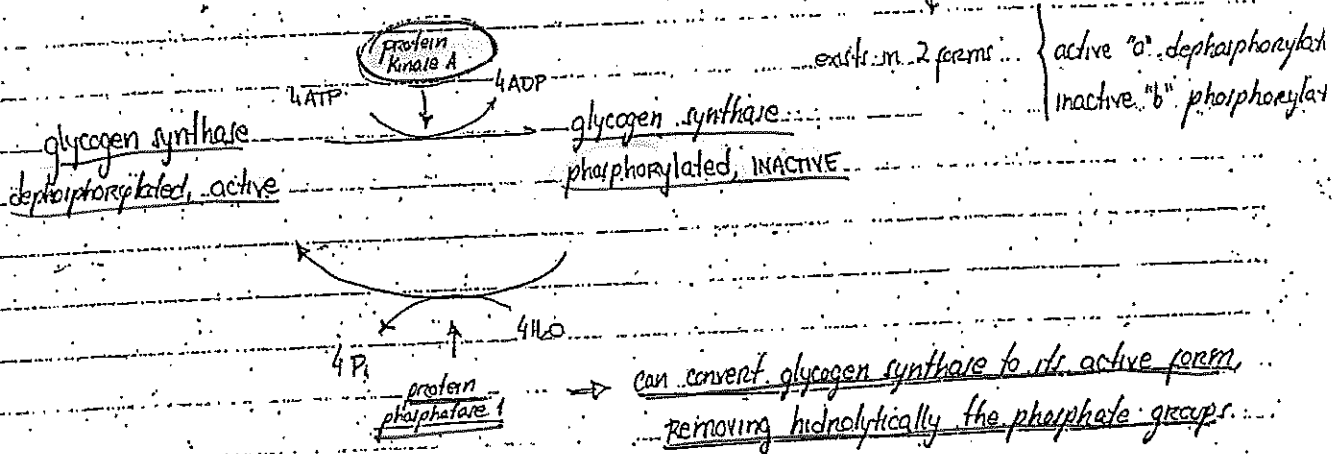 protein
kinase A
exists in 2 forms
active "a" dephosphorylat
inactive "b" phosphorylat
4ATP
4ADP
glycogen synthase
dephosphorylated, active
glycogen synthase
phosphorylated, INACTIVE
4Pi
4H2O
protein
phosphatase 1
can convert glycogen synthase to its active form,
removing hidrolytically the phosphate groups.